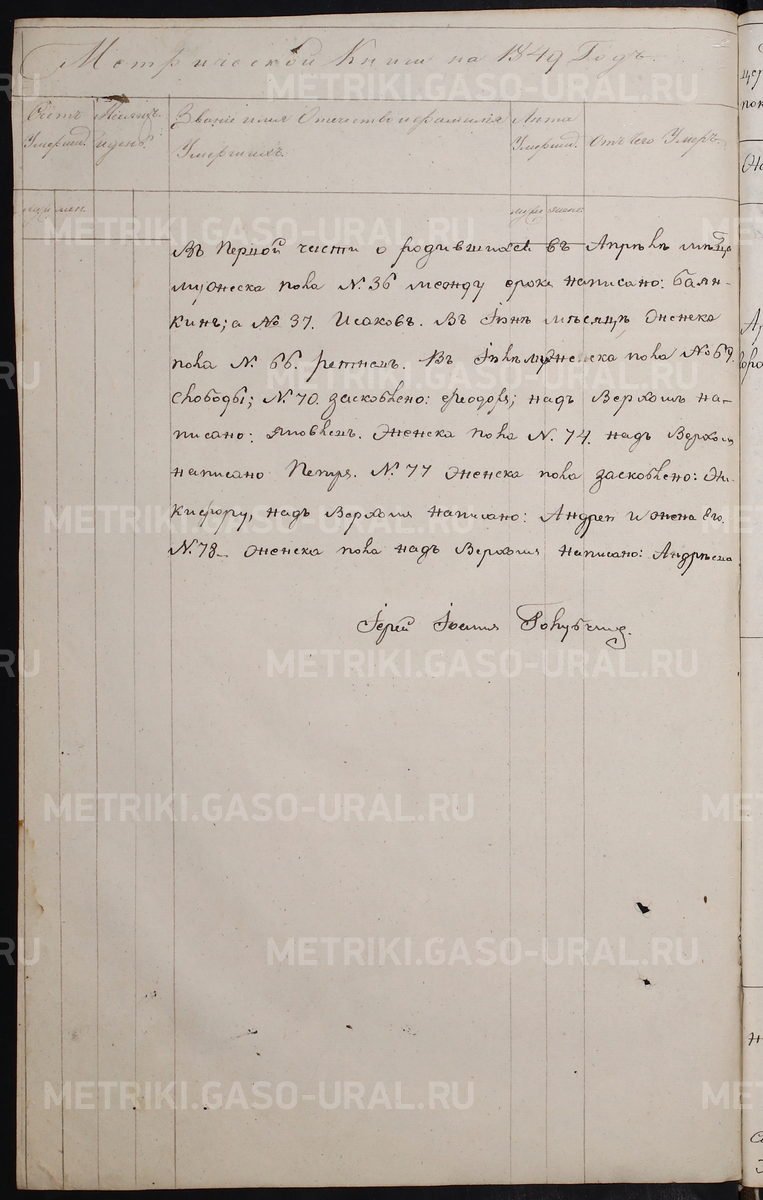 Метрической Книги на 1849 Годъ.
Счетъ Умерших.
Месяцъ и день.
Званіе имя Отечество и фамилія Умершихъ.
Лѣта Умерш.
Отъ чего Умеръ
муж жен.
муж жен.
Въ Первой части о родившихся въ Апрѣлѣ мѣсяцѣ
мужеска пола №36 между срокъ написано: Балы-
кинъ; а №37. Исаковъ. Въ Іюнѣ мѣсяцѣ женска
пола №66. Въ Іюлѣ мужеска пола №69.
Слободы; №70. заскоблено: Ѳеодоръ; надъ Верхомъ на-
писано: Яковлевъ. Женска пола №74. надъ Верхомъ
написано Петръ. №77 женска пола заскоблено: Ни-
кифоръ, надъ Верхомъ написано: Андрей и жена Его.
№78 женска пола надъ Верхомъ написано: Андрѣева
Іерей Іоаннъ Голубчик.
METRIKI.GASO-URAL.RU